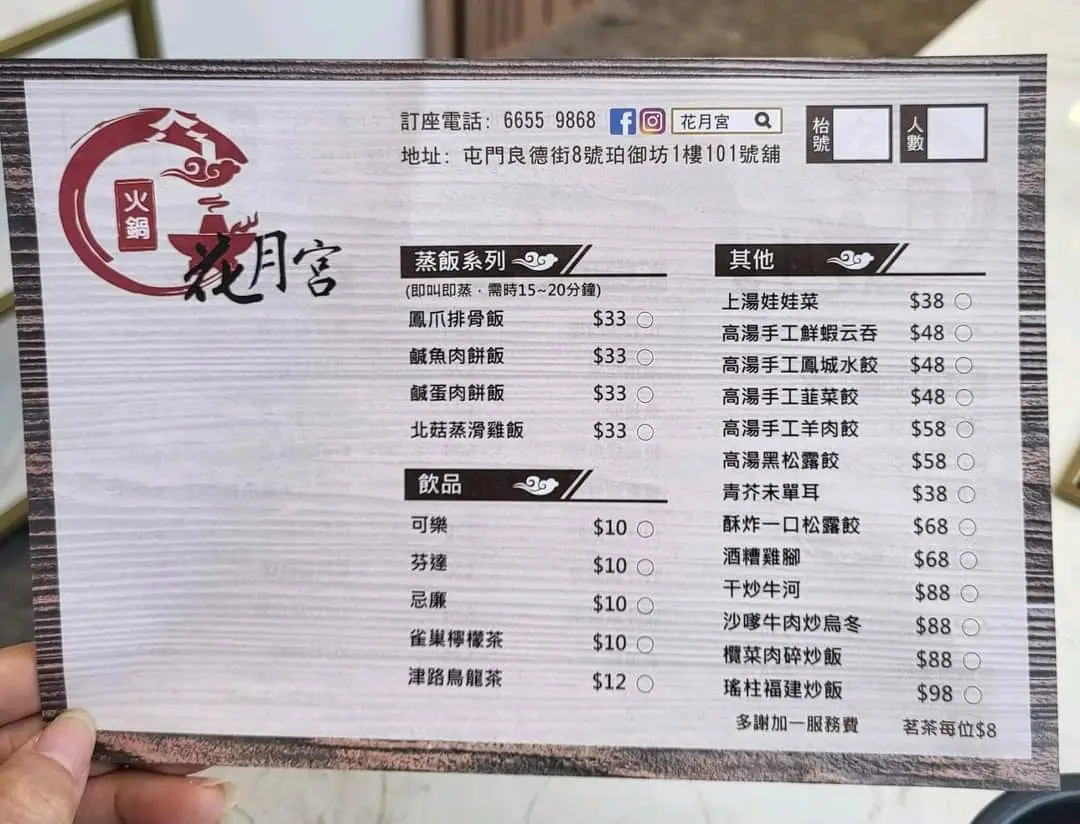 火鍋
花月宮
訂座電話: 6655 9868 花月宮
地址: 屯門良德街8號珀御坊1樓101號舖
枱號
人數
蒸飯系列
(即叫即蒸，需時15~20分鐘)
鳳爪排骨飯 $33
鹹魚肉餅飯 $33
鹹蛋肉餅飯 $33
北菇蒸滑雞飯 $33
飲品
可樂 $10
芬達 $10
忌廉 $10
雀巢檸檬茶 $10
津路烏龍茶 $12
其他
上湯娃娃菜 $38
高湯手工鮮蝦云吞 $48
高湯手工鳳城水餃 $48
高湯手工韮菜餃 $48
高湯手工羊肉餃 $58
高湯黑松露餃 $58
青芥未單耳 $38
酥炸一口松露餃 $68
酒糟雞腳 $68
干炒牛河 $88
沙嗲牛肉炒烏冬 $88
欖菜肉碎炒飯 $88
瑤柱福建炒飯 $98
多謝加一服務費 茗茶每位$8